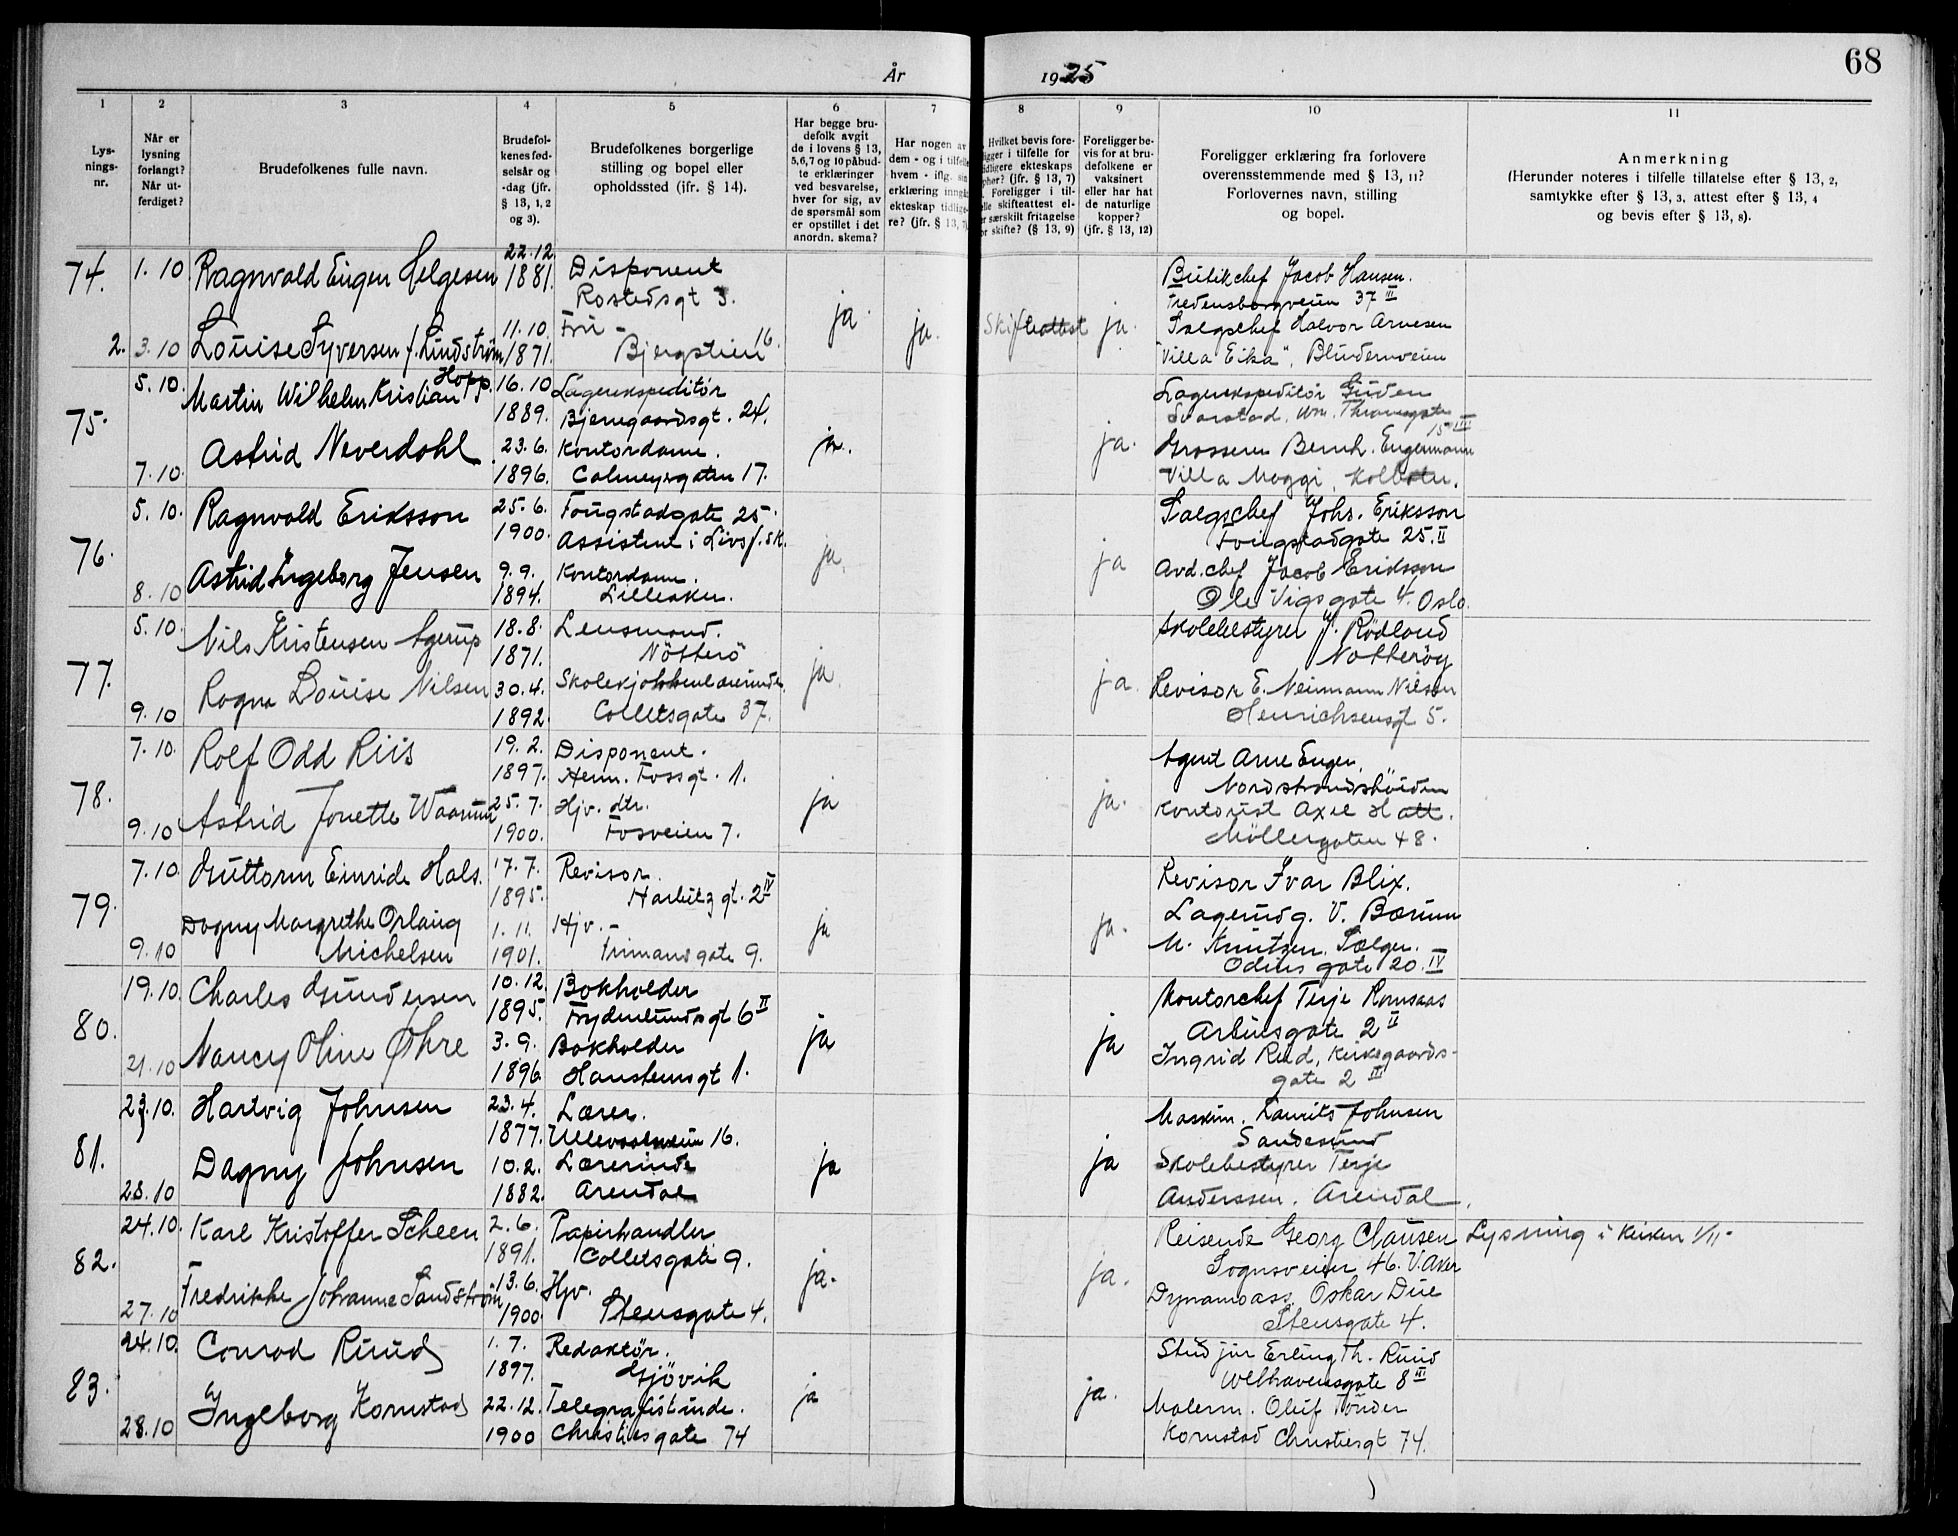 68
År 1925
1 2 3 4 5 6 7 8 9 10 11
Lys-
nings-
nr.
Når er
lysning
forlangt?
Når ut-
ferdiget?
Brudefolkenes fulle navn.
Brudefol-
kenes fød-
selsår og
-dag (jfr.
§ 13, 1, 2
og 3).
Brudefolkenes borgerlige
stilling og bopel eller
opholdssted (jfr. § 14).
Har begge bru-
defolk avgit
de i lovens § 13,
5,6,7 og 10 påbud-
te erklæringer
ved besvarelse,
hver for sig, av
de spørsmål som
er opstillet i det
anordn. skema?
Har nogen av
dem - og i tilfelle
hvem - iflg. sin
erklæring inngåt
ekteskap tidlige-
re? (jfr. § 13, 7)
Hvilket bevis fore-
ligger i tilfelle for
tidligere ekteskaps
ophør? (jfr. § 13, 7)
Foreligger i til-
felle skifteattest el-
ler særskilt fritagelse
for skifte? (§ 13, 9)
Foreligger be-
vis for at bru-
defolkene er
vaksinert
eller har hat
de naturlige
kopper?
(jfr. § 13, 12)
Foreligger erklæring fra forlovere
overensstemmende med § 13, 11?
Forlovernes navn, stilling
og bopel.
Anmerkning
(Herunder noteres i tilfelle tillatelse efter § 13, 2,
samtykke efter § 13, 3, attest efter § 13, 4
og bevis efter § 13, 8).
74. 1.10 Ragnvald Eugen Helgesen 22.12 1881. Disponent
Rostedsgt 3.
2. 3.10 Louise Syversen f. Lindstrøm 11.10 1871. Fru -
Bjergstien 16.
ja. ja. Skifteattest ja.
Butikchef Jacob Hansen.
Fredensborgveien 37 III
Salgschef Halvor Arnesen
"Villa Eika", Blindernveien
75. 5.10. Martin Wilhelm Kristian Hopp. 16.10 1889. Lagerekspeditør
Bjerregaardsgt. 24.
7.10. Astrid Neverdahl 23.6. 1896. Kontordame.
Calmeyersgaten 17.
ja. ja.
Lagerekspeditør
Svarstad. Thranesgate
15 III
Grosserer Bernh. Engermann
Villa Moggi, Kolbotn.
76. 5.10. Ragnvald Eriksson 25.6. 1900. Fougstadgate 25.
Assistent i Livsf.sk.
8.10 Astrid Ingeborg Jensen 9.9. 1894. Kontordame.
Lilleaker.
ja. ja
Salgschef Johs. Eriksson
Fougstadgate 25. II
Avd.chef Jacob Eriksson
Ole Vigsgate 4. Oslo.
77. 5.10. Nils Kristensen Agerup 18.8. 1871. Lensmand.
Nötterö
9.10 Ragna Louise Nilsen 30.4. 1892. Skolekjøkkenlærerinde.
Colletsgate 37.
ja. ja.
Skolebestyrer J. Rödland
Nötteröy
Revisor E. Neumann Nilsen
Henrichsensgt 5.
78. 7.10. Rolf Odd Riis 19.2. 1897. Disponent.
Henr. Fossgt. 1.
9.10 Astrid Jonette Waarum 25.7. 1900. Hjv. dtr.
Fosveien 7.
ja ja.
Agent Arne Enger.
Nordstrandshöiden
Kontorist Axel Hatt.
Möllergaten 48.
79. 7.10. Guttorm Einride Hals. 17.7. 1895. Revisor.
Harbitzgt. 2 IV
9.10 Dagny Margrethe Orlaug
Michelsen 1.11. 1901. Hjv. -
Trimansgate 9.
ja ja.
Revisor Ivar Blix.
Lagerindg. V. Bærum
M. Knutzen. Sælger.
Odins gate 20. IV
80. 19.10. Charles Gundersen 10.12. 1895. Bokholder
Frydenlundsgt 6 II
21.10 Nancy Oline Øhre 3.9. 1896. Bokholder
Hansteensgt 1.
ja ja
Kontorchef Terje Romsaas
Arbinsgate 2 II
Ingrid Rud, Kirkegaards-
gate 2 III
81. 23.10. Hartvig Johnsen 23.4. 1877. Lærer.
Ullevoalsveien 16.
28.10 Dagny Johnsen 10.2. 1882. Lærerinde
Arendal
ja ja
Maskin. Laurits Johnsen
Sandesund
Skolebestyrer Terje
Anderssen. Arendal.
82. 24.10. Karl Kristoffer Scheen 2.6. 1891. Papirhandler
Colletsgate 9.
27.10 Fredrikke Johanne Sandstrøm 13.6. 1900. Hjv.
Stensgate 4.
ja. ja.
Reisende Georg Clausen Lysning i kirken 1/11-
Sognsveien 46. V.Aker
Dynamoass. Oskar Due
Stensgate 4.
83. 24.10. Conrad Ruud 1.7. 1897. Redaktør.
Gjövik
28.10 Ingeborg Kornstad 22.12. 1900 Telegrafistinde.
Christiesgate 74
ja ja.
Stud jur Erling Th. Ruud
Welhavensgate 8 III
Malerm. Oluf Tönder
Kornstad Christiesgt 74.